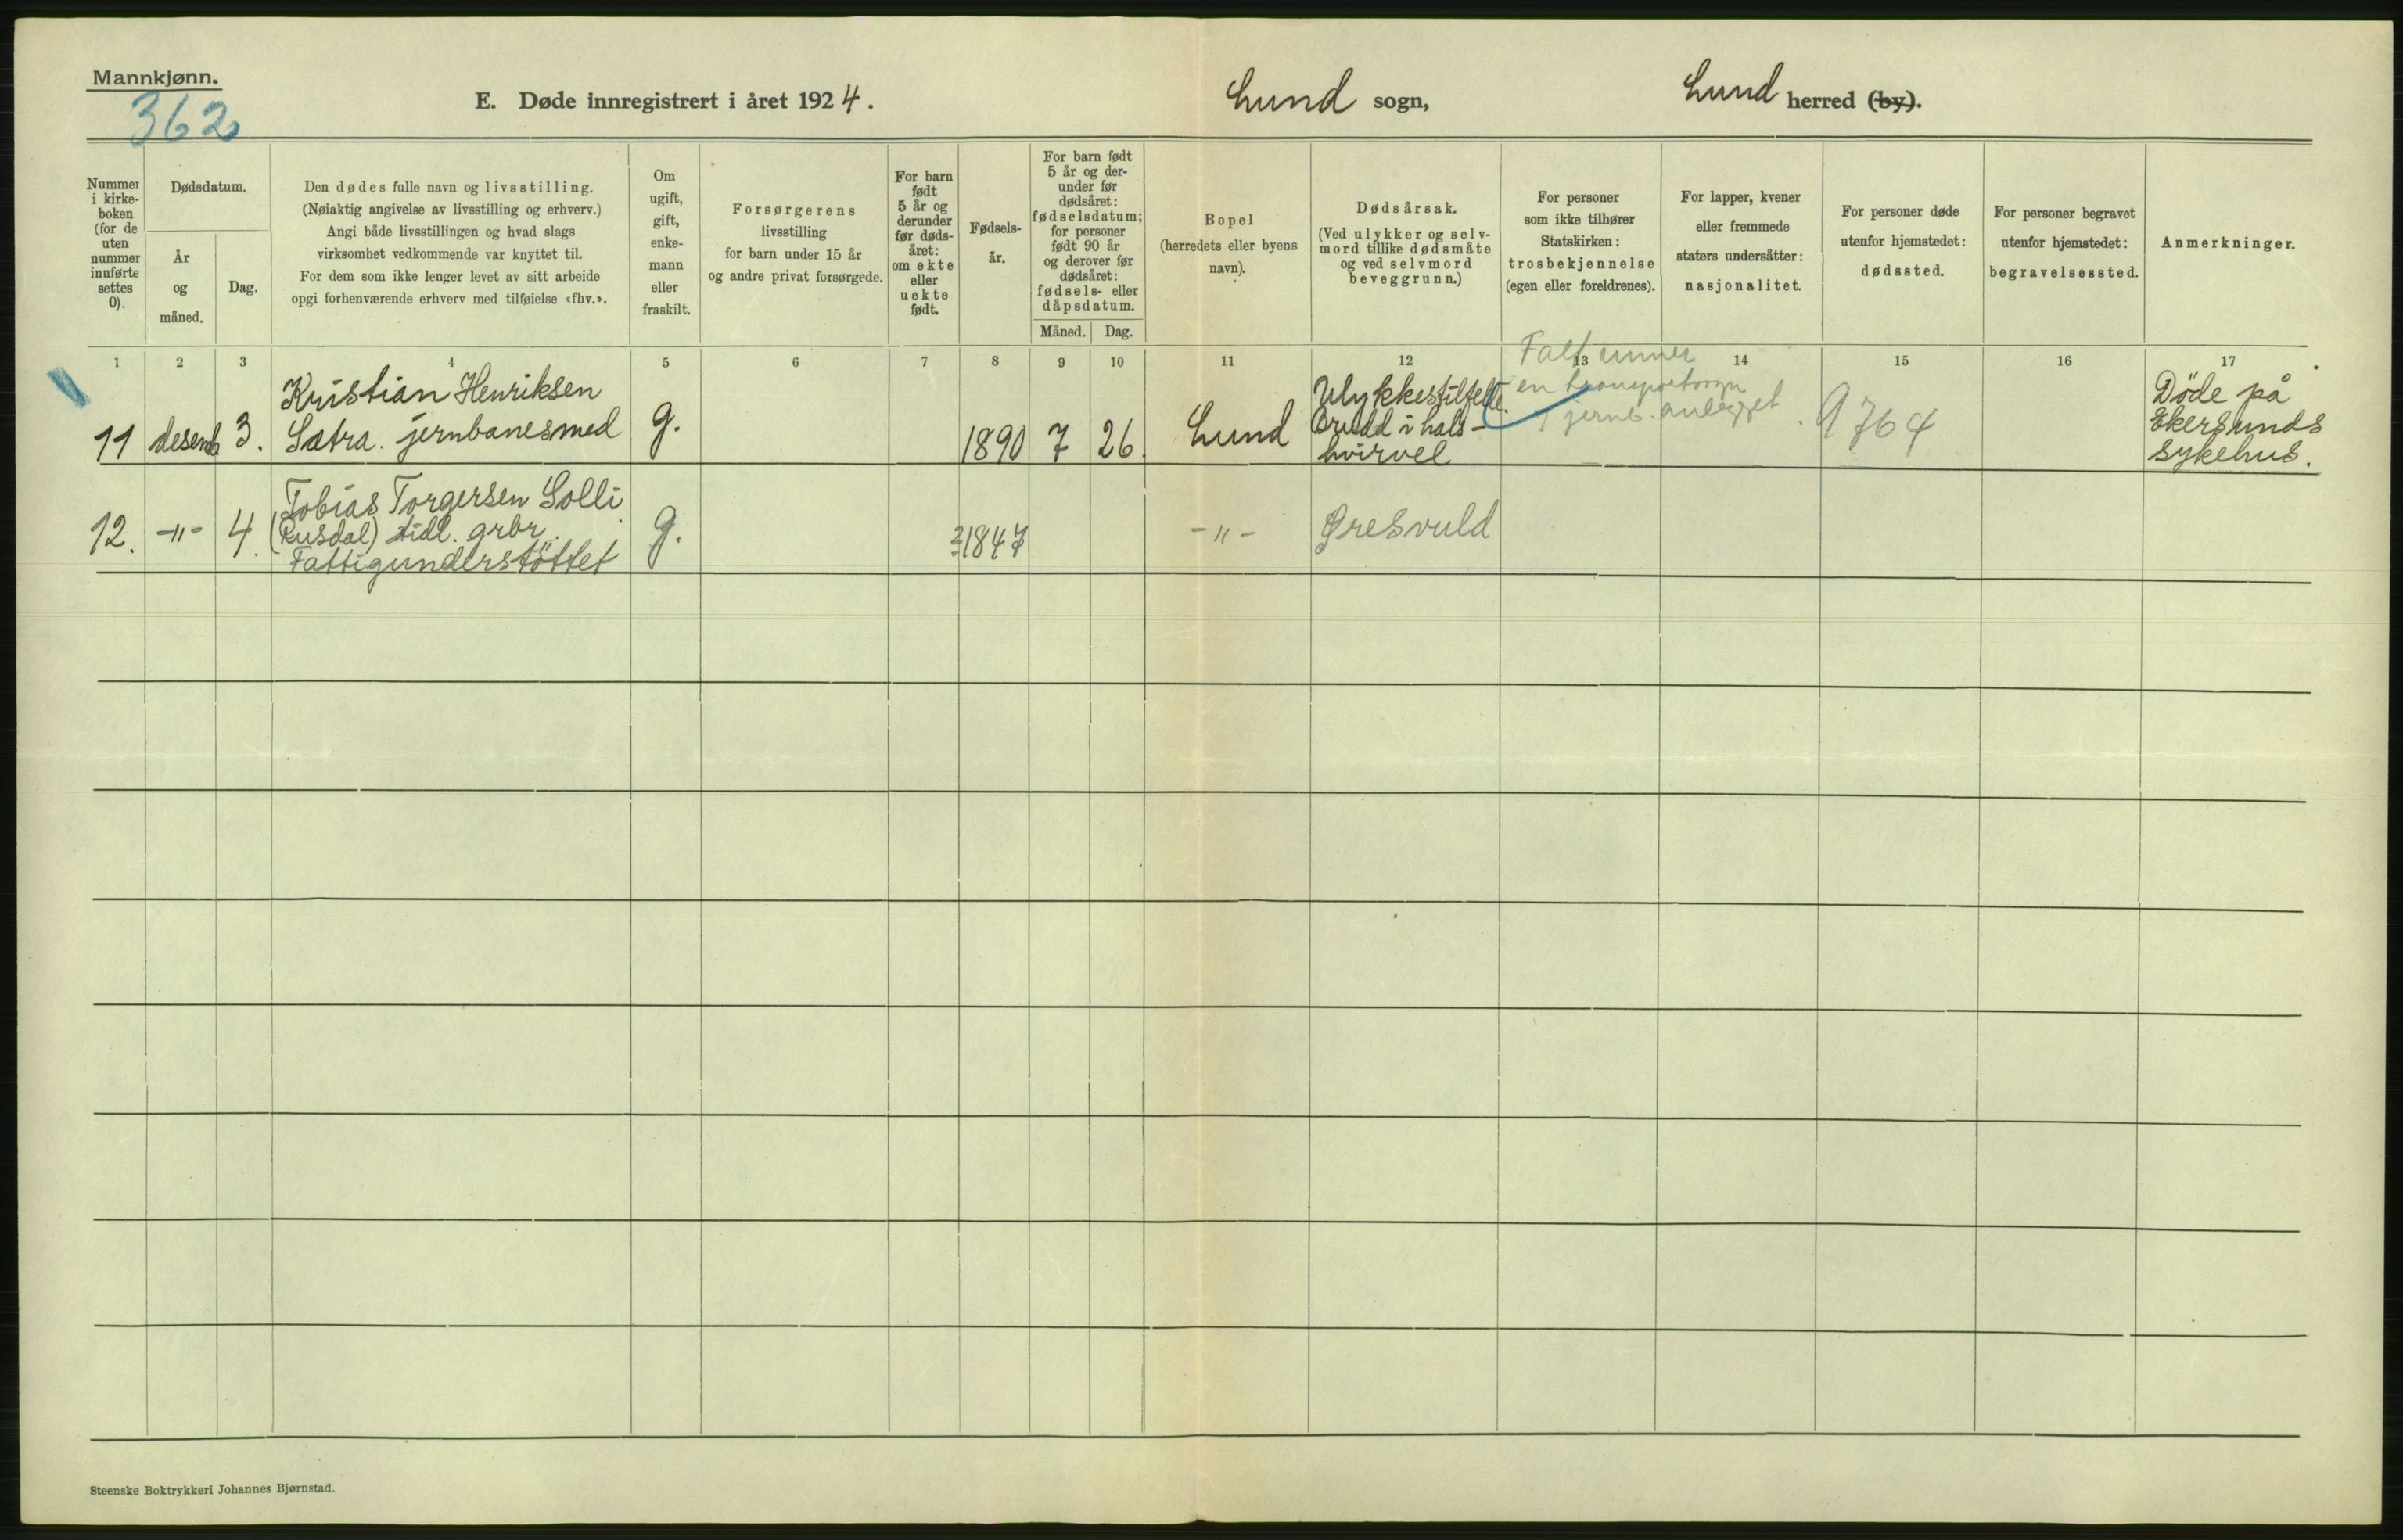 Mannkjønn.
362
E. Døde innregistrert i året 1924.
Lund sogn,
Lund herred (by).
Nummer
i kirke-
boken
(for de
uten
nummer
innførte
settes
0).
Dødsdatum.
År
og
måned.
Dag.
Den dødes fulle navn og livsstilling.
(Nøiaktig angivelse av livsstilling og erhverv.)
Angi både livsstillingen og hvad slags
virksomhet vedkommende var knyttet til.
For dem som ikke lenger levet av sitt arbeide
opgi forhenværende erhverv med tilføielse «fhv.».
Om
ugift,
gift,
enke-
mann
eller
fraskilt.
Forsørgerens
livsstilling
for barn under 15 år
og andre privat forsørgede.
For barn
født
5 år og
derunder
før døds-
året:
om ekte
eller
uekte
født.
Fødsels-
år.
For barn født
5 år og der-
under før
dødsåret:
fødselsdatum;
for personer
født 90 år
og derover før
dødsåret:
fødsels- eller
dåpsdatum.
Måned. Dag.
Bopel
(herredets eller byens
navn).
Dødsårsak.
(Ved ulykker og selv-
mord tillike dødsmåte
og ved selvmord
beveggrunn.)
For personer
som ikke tilhører
Statskirken:
trosbekjennelse
(egen eller foreldrenes).
For lapper, kvener
eller fremmede
staters undersåtter:
nasjonalitet.
For personer døde
utenfor hjemstedet:
dødssted.
For personer begravet
utenfor hjemstedet:
begravelsessted.
Anmerkninger.
1 2 3 4 5 6 7 8 9 10 11 12 13 14 15 16 17
11 desemb 3.
Kristian Henriksen
Sætra. jernbanesmed
g.
1890 7 26.
Lund
Ulykkestilfelle.
Brudd i hals-
hvirvel
Falt under
en transportvogn
jernb. anlegget
9764
Döde på
Ekersunds
sykehus.
12. -"- 4.
Tobias Torgersen Solli
(Rusdal) tidl. grbr.
Fattigunderstöttet
g.
1847
-"-
Øresvuld
Steenske Boktrykkeri Johannes Bjørnstad.